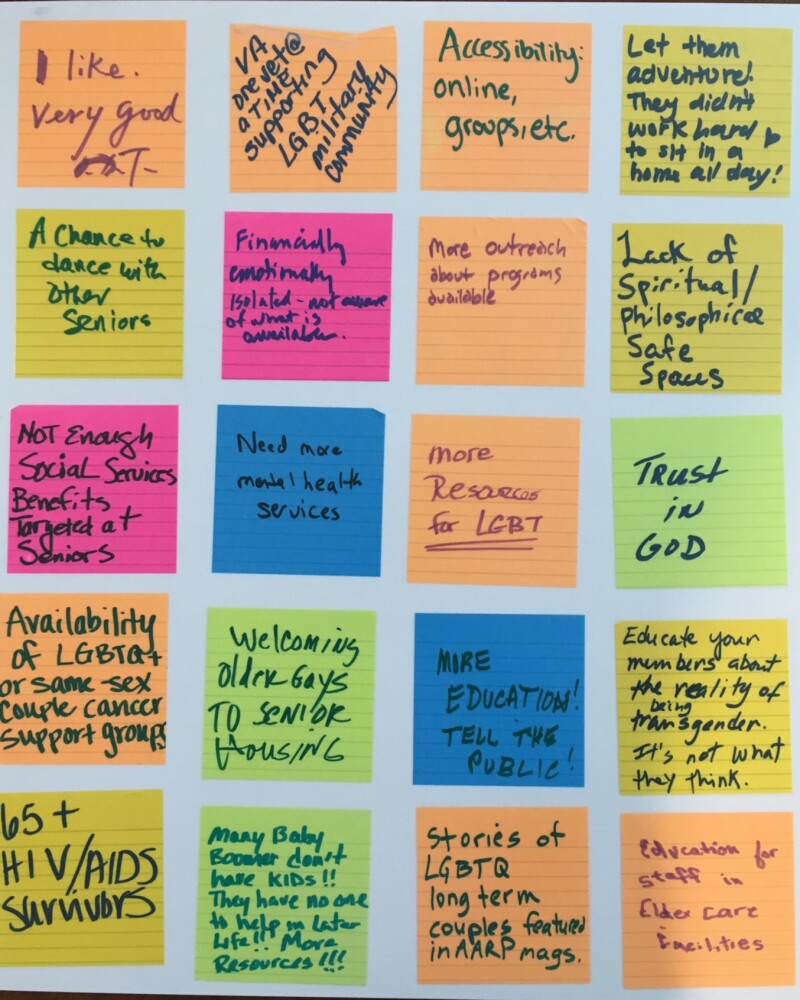 I like.
Very good
VA
one vet @
a TIME
supporting
LGBT
military
community
Accessibility:
online,
groups, etc.
Let them
adventure!
They didn't
work hard
to sit in a
home all day!
A Chance to
dance with
other
Seniors
Financially
emotionally
Isolated - not aware
of what is
available.
More outreach
about programs
available
Lack of
Spiritual/
Philosophical
Safe
Spaces
NOT Enough
Social Services
Benefits
Targeted at
Seniors
Need more
mental health
services
more
Resources
for LGBT
TRUST
IN
GOD
Availability
of LGBTQ+
or same-sex
couple cancer
support groups
Welcoming
older Gays
TO SENIOR
HOUSING
MORE
EDUCATION!
TELL THE
PUBLIC!
Educate your
members about
the reality of
being
transgender.
It's not what
they think.
65+
HIV/AIDS
survivors
Many Baby
Boomer don't
have KIDS!!
They have no one
to help in Later
Life!! More
Resources!!!
Stories of
LGBTQ
long term
couples featured
in AARP mags.
Education for
staff in
Elder care
Facilities